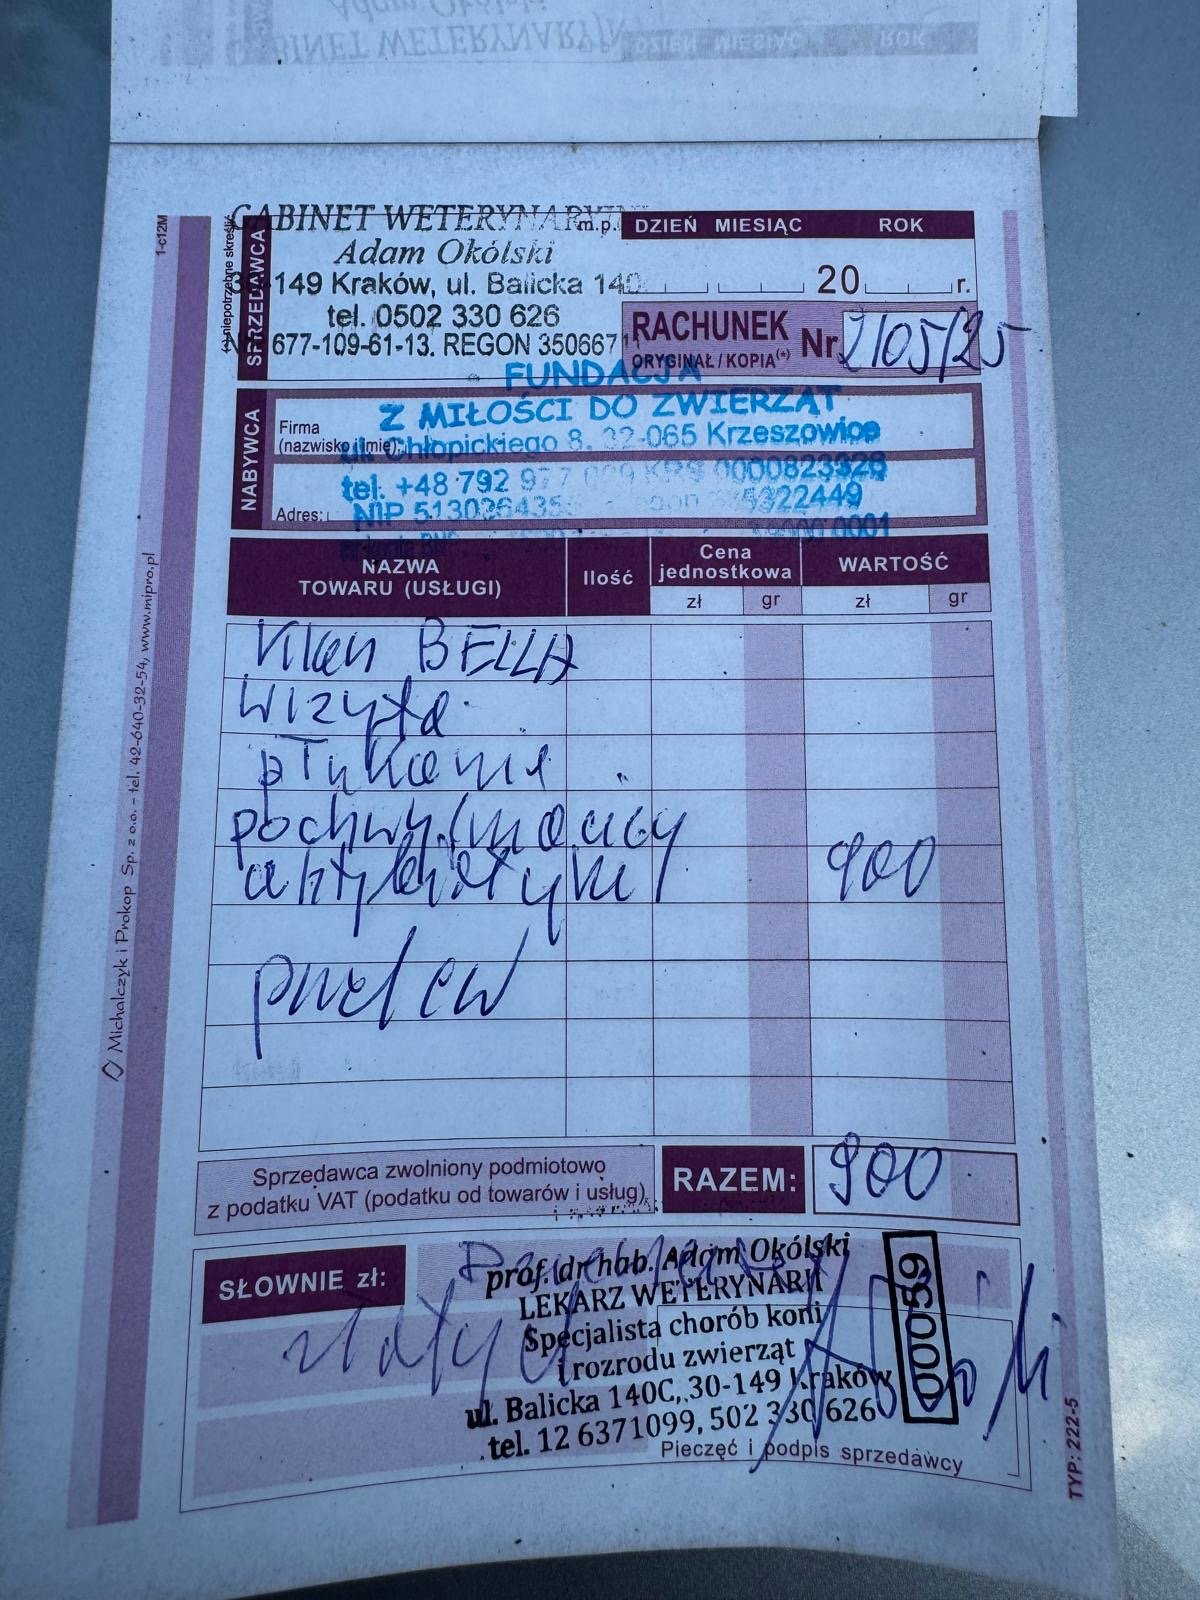 GABINET WETERYNARYJN
Adam Okólski
149 Kraków, ul. Balicka 140
tel. 0502 330 626
677-109-61-13. REGON 350667
SPRZEDAWCA
(*) niepotrzebne skreślić
1-c12M
m.p.
DZIEŃ MIESIĄC ROK
20 r.
RACHUNEK
ORYGINAŁ / KOPIA(*)
Nr 2105/25
NABYWCA
Firma
(nazwisko i imię):
Adres:
FUNDACJA
Z MIŁOŚCI DO ZWIERZĄT
ul. Chłopickiego 8, 32-065 Krzeszowice
tel. +48 792 977 009 KRS 0000823326
NIP 5130264358
NAZWA
TOWARU (USŁUGI)
Ilość
Cena
jednostkowa
WARTOŚĆ
zł gr zł gr
Klacz BELLA
wizyta
płukanie
pochwy/macicy
antybiotyki 900
przelew
Sprzedawca zwolniony podmiotowo
z podatku VAT (podatku od towarów i usług)
RAZEM: 900
SŁOWNIE zł:
złotych
prof. dr hab. Adam Okólski
LEKARZ WETERYNARII
Specjalista chorób koni
i rozrodu zwierząt
ul. Balicka 140C, 30-149 Kraków
tel. 12 6371099, 502 330 626
00059
Pieczęć i podpis sprzedawcy
TYP: 222-5
Michalczyk i Prokop Sp. z o.o. - tel. 42-640-32-54, www.mipro.pl